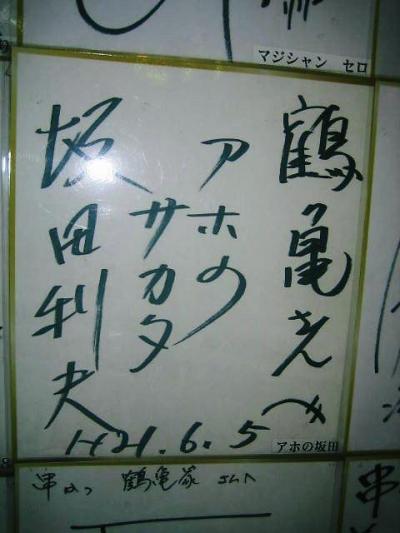 マジシャン セロ
鶴亀さんへ
アホの
サカタ
坂田利夫
H21.6.5
アホの坂田
串かつ 鶴亀家 さんへ